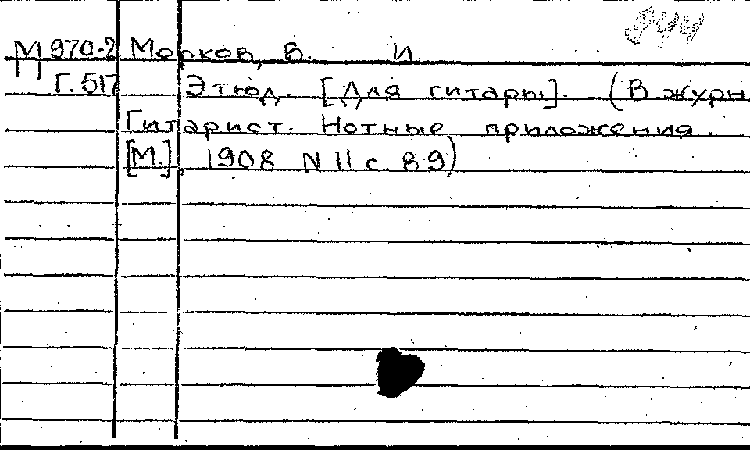 944
М 970-2 Морков, В. И
Г. 517 Этюд. [Для гитары]. (В журн
Гитарист. Нотные приложения.
[М.], 1908 N 11 с 8-9)